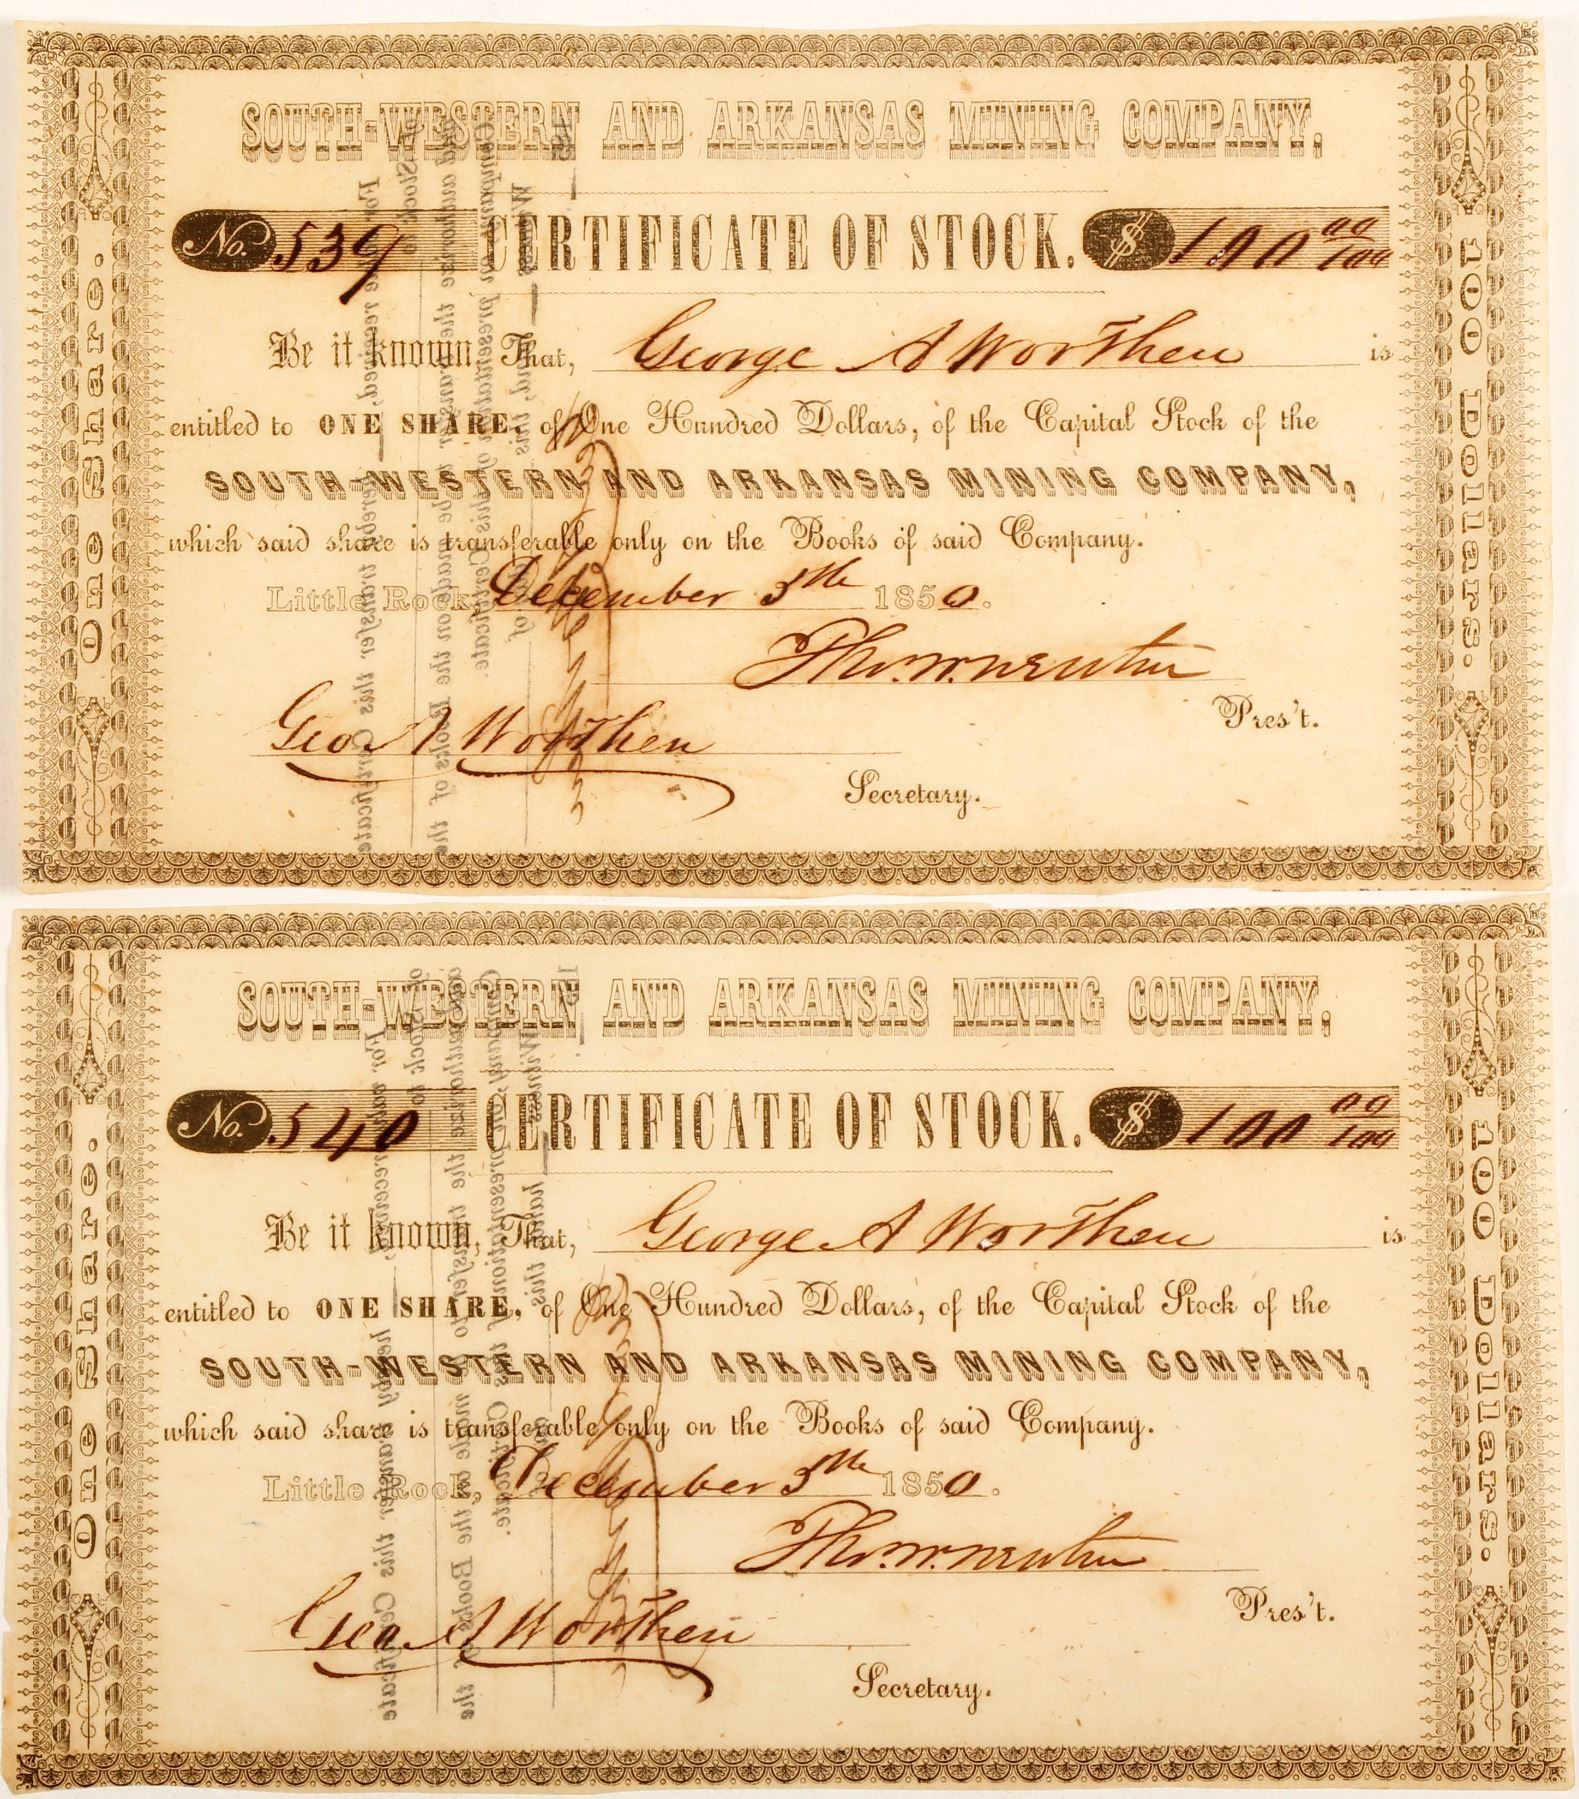 SOUTH-WESTERN AND ARKANSAS MINING COMPANY,
No. 539 CERTIFICATE OF STOCK. $ 100 00/100
Be it known, That, George A Worthen is
entitled to ONE SHARE, of One Hundred Dollars, of the Capital Stock of the
SOUTH-WESTERN AND ARKANSAS MINING COMPANY,
which said share is transferable only on the Books of said Company.
Little Rock, December 5th 1850.
Tho. W. Newton
Pres't.
Geo A Worthen
Secretary.
One Share.
100 Dollars.
SOUTH-WESTERN AND ARKANSAS MINING COMPANY,
No. 540 CERTIFICATE OF STOCK. $ 100 00/100
Be it known, That, George A Worthen is
entitled to ONE SHARE, of One Hundred Dollars, of the Capital Stock of the
SOUTH-WESTERN AND ARKANSAS MINING COMPANY,
which said share is transferable only on the Books of said Company.
Little Rock, December 5th 1850.
Tho. W. Newton
Pres't.
Geo A Worthen
Secretary.
One Share.
100 Dollars.